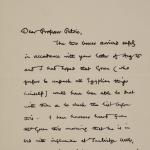 Dear Professor Petrie,
The two boxes arrived safely
in accordance with your letter of Aug 20
and I had hoped that Grace (who
prefers to unpack all Egyptian things
himself) would have been able to deal
with them and to check the list before
this. I have however heard from
Grace this morning that he is in
bed with influenza at Tunbridge Wells,